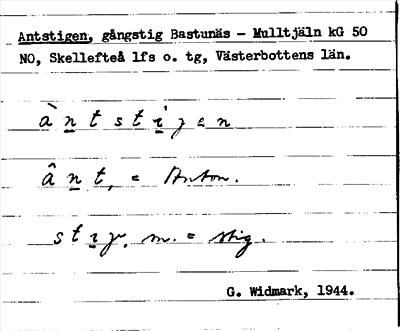 Antstigen, gångstig Bastunäs - Mulltjäln kG 50
NO, Skellefteå lfs o. tg, Västerbottens län.
àn̲tsti̲ɣen
ân̲t, = Anton.
stɩ̲ɣ, m. = stig.
G. Widmark, 1944.